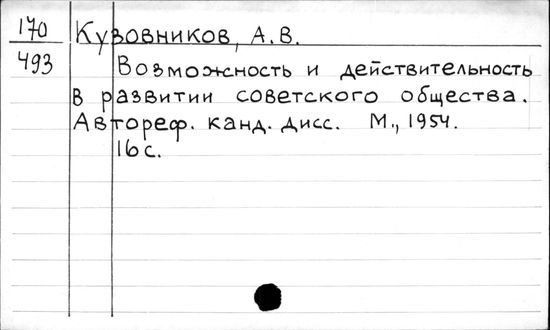 170
493
Кузовников, А.В.
Возможность и действительность
в развитии советского общества.
Автореф. канд. дисс. М., 1954.
16 с.